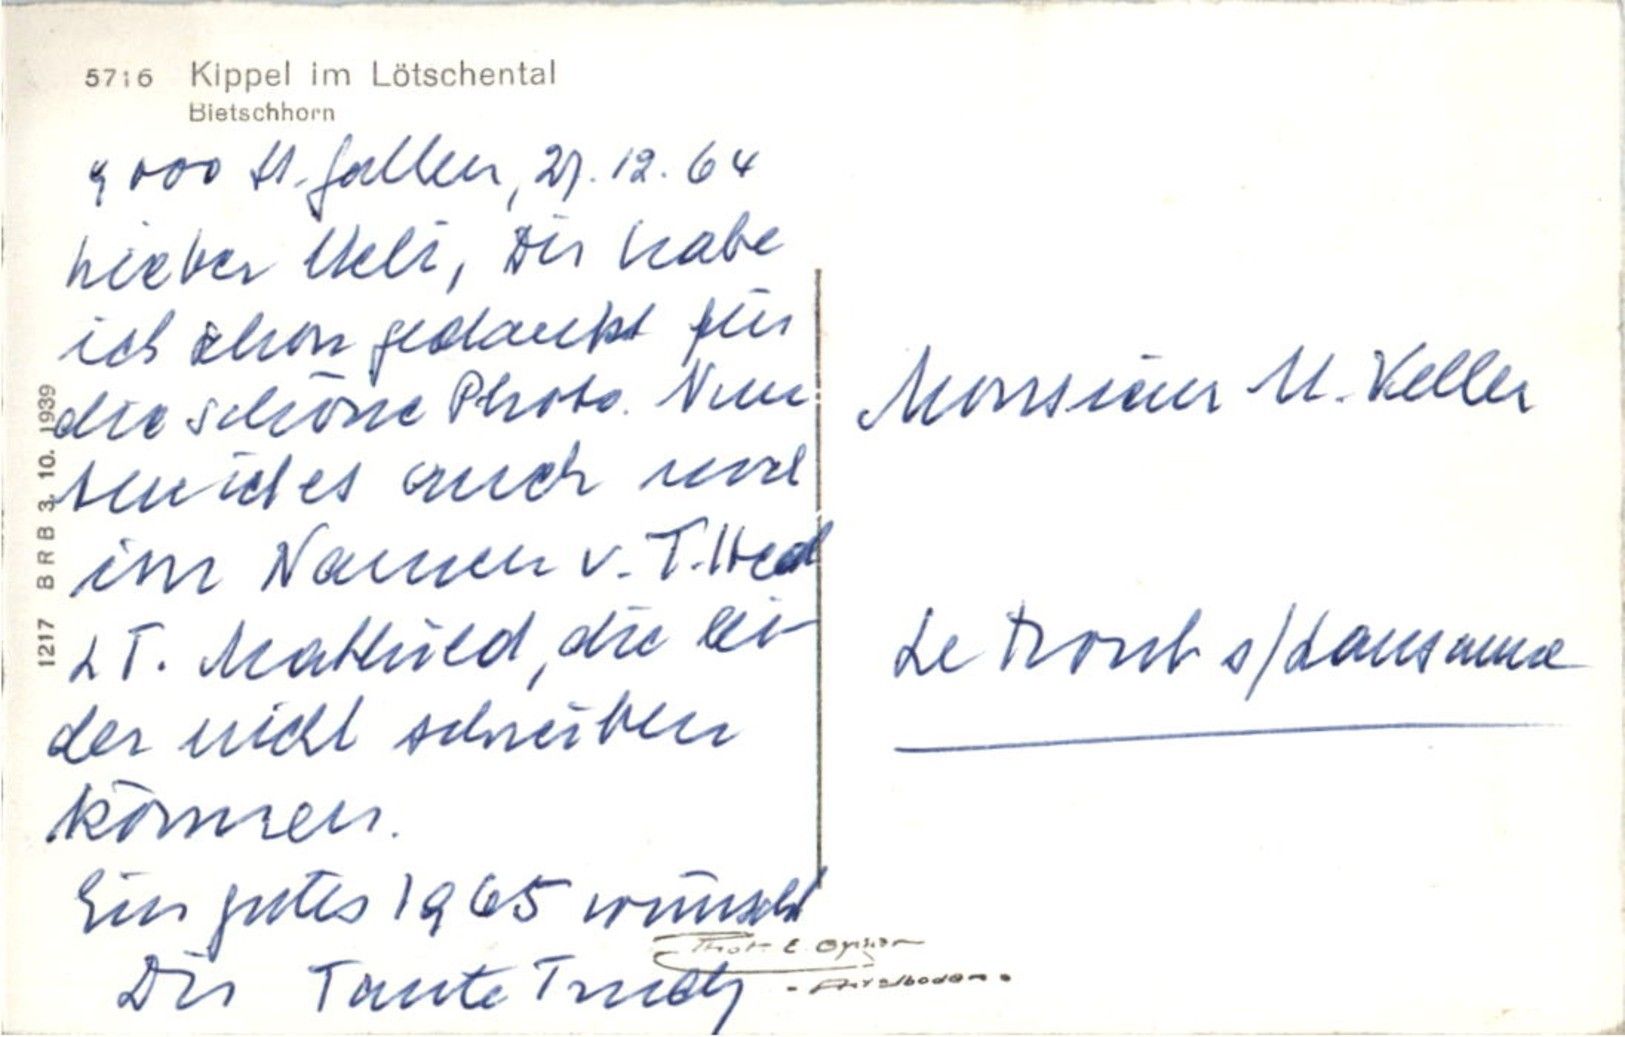 5716 Kippel im Lötschental
Bietschhorn
9000 St. Gallen, 27.12.64
Lieber Ueli, Dir habe
ich schon gedankt für
die schöne Photo. Nun
tu ich es auch noch
im Namen v. T. Hed
& T. Mathild, die lei-
der nicht schreiben
können.
Ein gutes 1965 wünscht
Dir Tante Trudy
1217 BRB 3. 10. 1939
Monsieur U. Keller
Le Mont s/Lausanne
Phot. E. Gyger
Adelboden